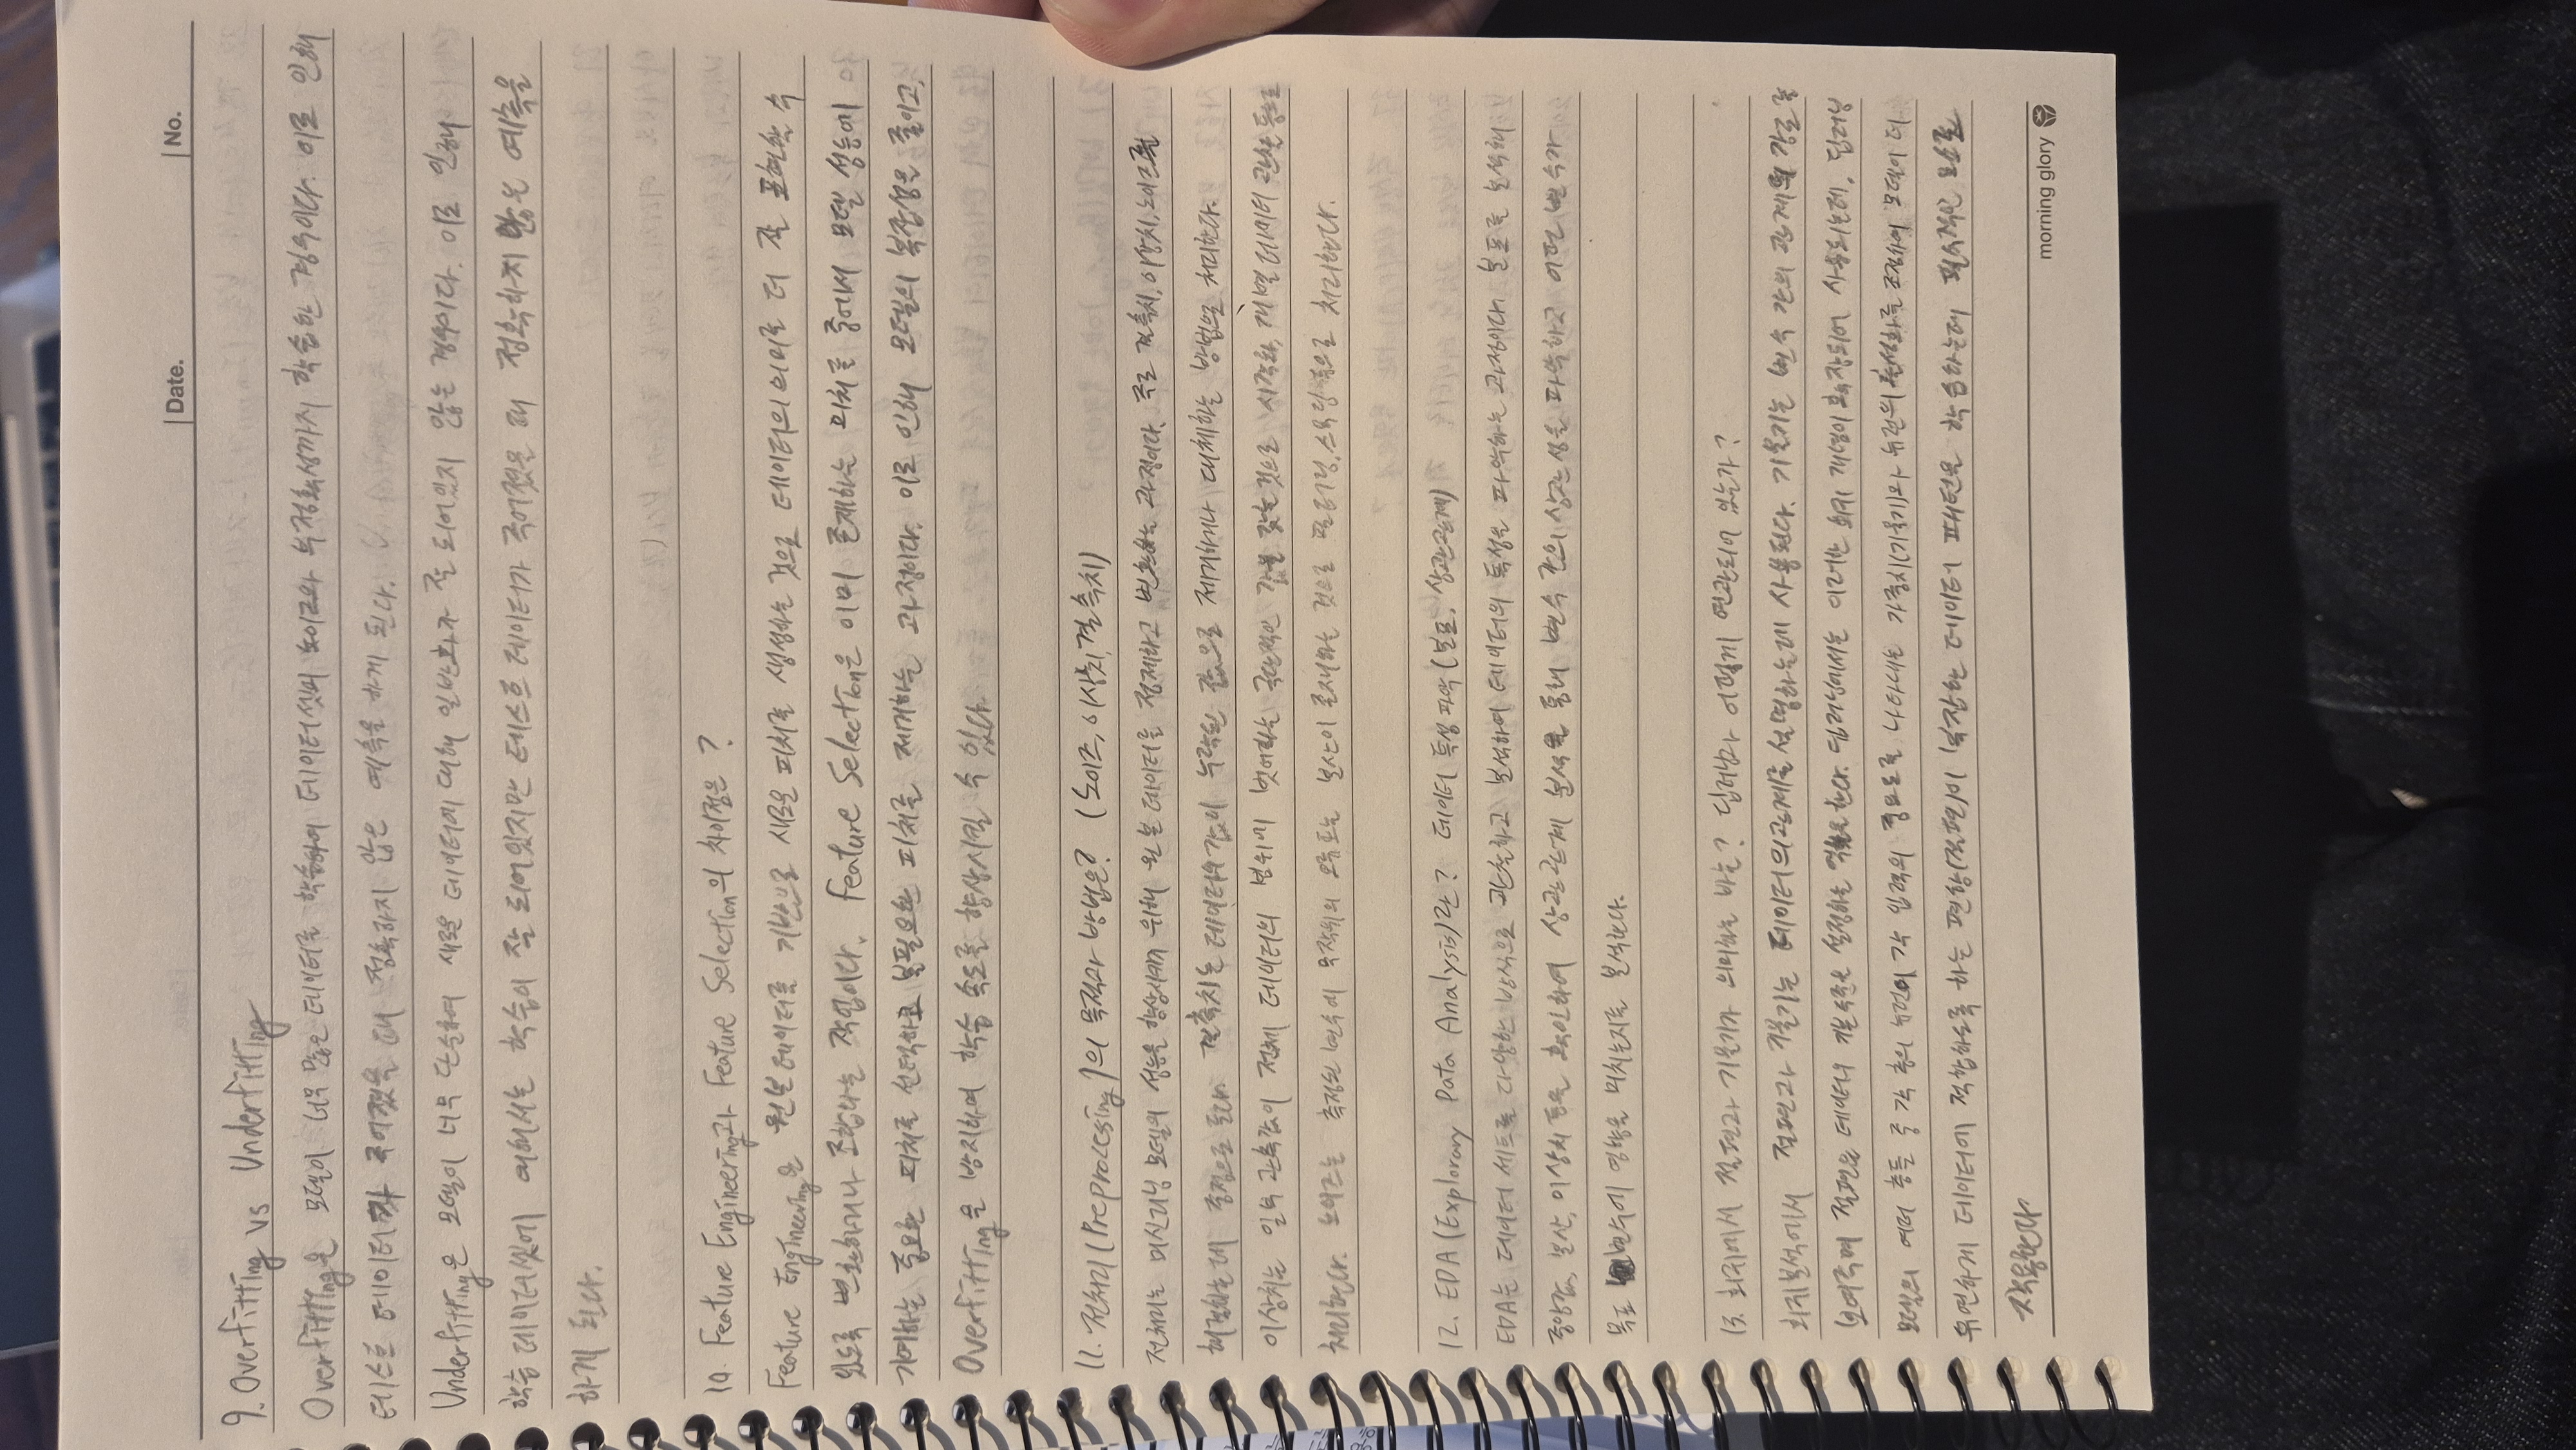 Date. No.
9. Overfitting vs Underfitting
Overfitting은 모델이 너무 많은 데이터를 학습하여 데이터셋의 노이즈와 부정확성까지 학습한 경우이다. 이로 인해
테스트 데이터가 주어졌을 때 정확하지 않은 예측을 하게 된다.
Underfitting은 모델이 너무 단순하여 새로운 데이터에 대해 일반화가 잘 되어있지 않는 경우이다. 이로 인해
학습 데이터셋에 대해서는 학습이 잘 되어있지만 테스트 데이터가 주어졌을 때 정확하지 않은 예측을
하게 된다.
10. Feature Engineering과 Feature Selection의 차이점은?
Feature Engineering은 원본 데이터를 기반으로 새로운 피처를 생성하는 것으로 데이터의 의미를 더 잘 표현할 수
있도록 변환하거나 조합하는 작업이다. Feature Selection은 이미 존재하는 피처들 중에서 모델 성능에
기여하는 중요한 피처를 선택하고 불필요한 피처를 제거하는 과정이다. 이로 인해 모델의 복잡성을 줄이고,
Overfitting을 방지하여 학습 속도를 향상시킬 수 있다.
11. 전처리(Preprocesing)의 목적과 방법은? (노이즈, 이상치, 결측치)
전처리는 머신러닝 모델의 성능을 향상시키기 위해 원본 데이터를 정제하고 변환하는 과정이다. 주로 결측치, 이상치, 노이즈를
해결하는데 중점으로 둔다. 결측치는 데이터의 값이 누락된 값으로 제거하거나 대체하는 방법으로 처리한다.
이상치는 일부 관측값이 전체 데이터의 범위에 벗어나는 극단적인 값을 갖는 것으로 시각화, 개별 데이터 관찰 등으로
처리한다. 노이즈는 측정된 변수에 무작위의 오류 또는 분산이 존재하는 것으로 필터링, 스무딩 등으로 처리한다.
12. EDA(Explorary Data Analysis)란? 데이터 특성 파악(분포, 상관관계)
EDA는 데이터 세트를 다양한 방식으로 관찰하고 분석하여 데이터의 특성을 파악하는 과정이다. 분포를 분석해
중앙값, 분산, 이상치 등을 확인하여 상관관계 분석을 통해 변수 간의 상관성을 파악하고 어떤 변수가
목표 변수에 영향을 미치는지를 분석한다.
13. 회귀에서 절편과 기울기가 의미하는 바는? 딥러닝과 어떻게 연관되어 있는가?
회귀분석에서 절편과 기울기는 데이터의 관계를 설명하는데 사용된다. 기울기는 변수 간의 관계의 강도를
보여주며 절편은 데이터의 기본 수준을 설정하는 역할을 한다. 딥러닝에서는 이러한 회귀 개념이 확장되어 사용되는데, 딥러닝
모델의 여러 층들 중 각 층의 뉴런이 각 입력의 중요도를 나타내는 가중치(기울기)와 뉴런의 활성화를 조정하여 모델이 더
유연하게 데이터에 적합하도록 하는 편향(절편)이 복잡한 데이터 패턴을 학습하는데 필수적인 요소로
작용한다.
morning glory